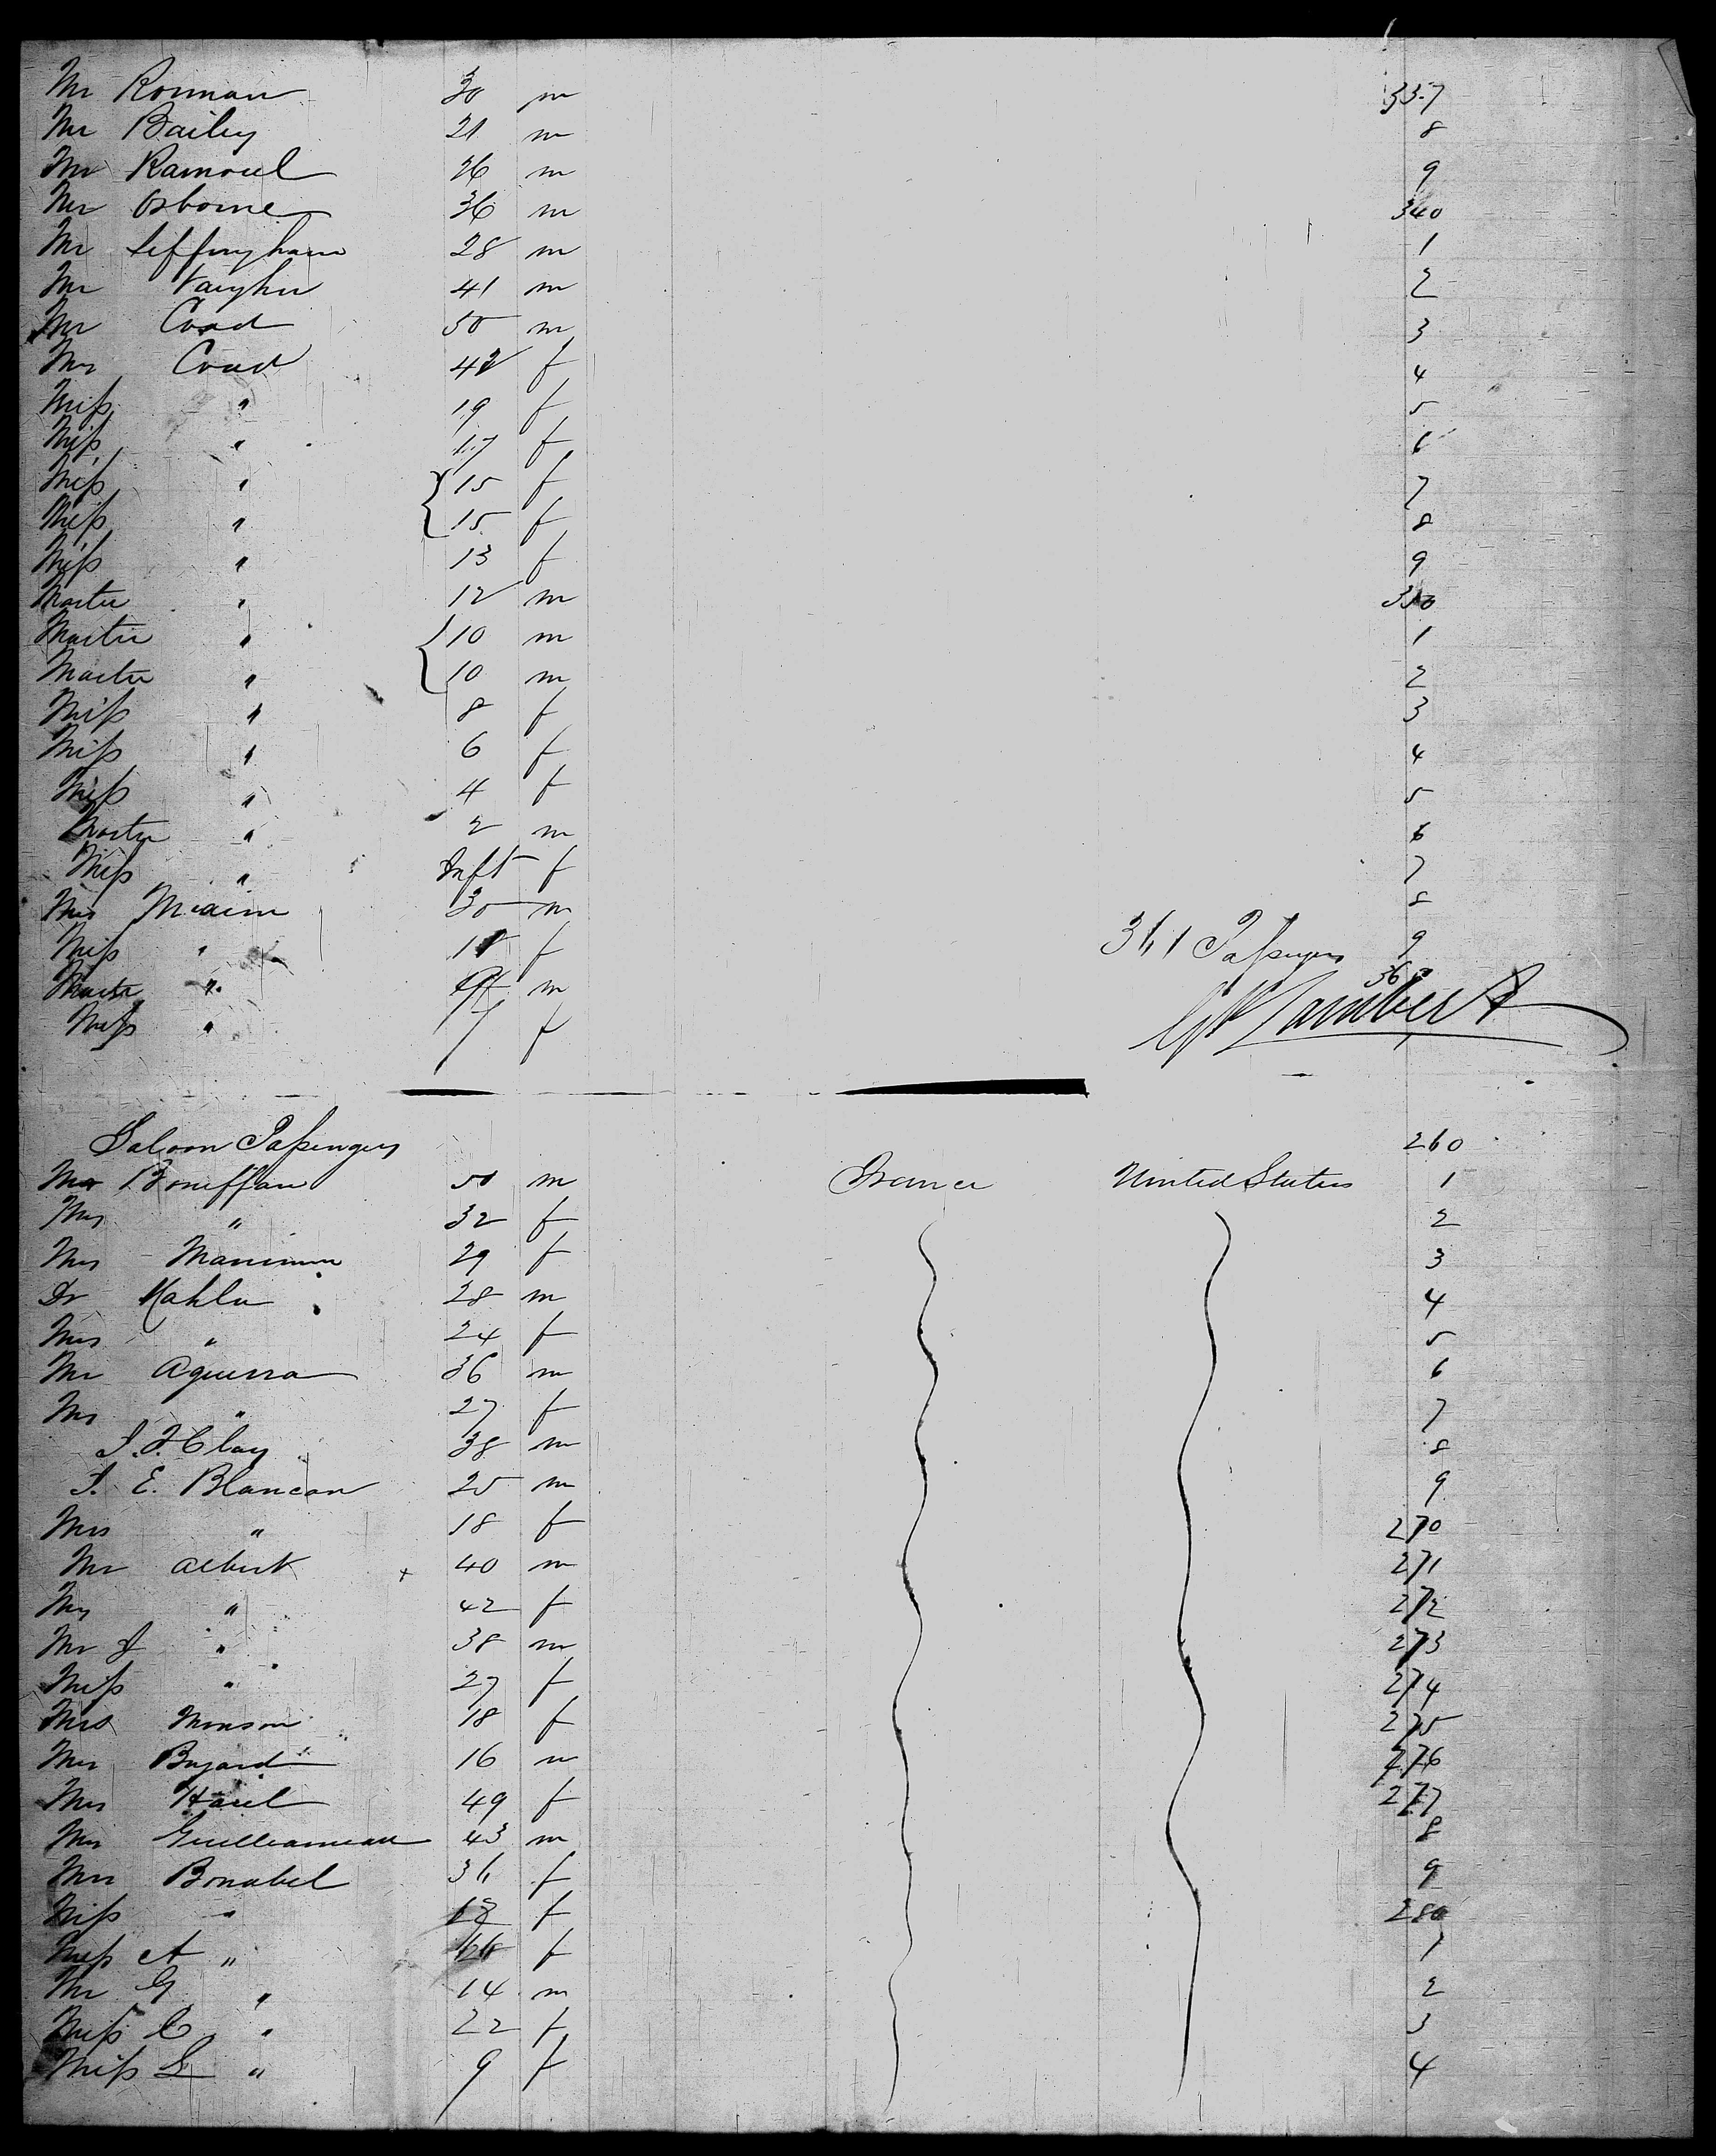 Mr Rorman 30 m 337
Mr Bailey 21 m 8
Mr 26 m 9
Mr Osborne 36 m 340
Mr Leffingham 28 m 1
Mr Vaughn 41 m 2
Mr Coad 50 m 3
Mrs Coad 42 f 4
Miss " 19 f 5
Miss " 17 f 6
Miss " { 15 f 7
Miss " 15 f 8
Miss " 13 f 9
Master " 12 m 350
Master " { 10 m 1
Master " 10 m 2
Miss " 8 f 3
Miss " 6 f 4
Miss " 4 f 5
Master " 2 m 6
Miss " Inft f 7
Mr 30 m 8
Miss " 11 f 9
Master " m 360
Miss " 7 f
361 Passengers
Lambert
Saloon Passengers 260
Mr Boniffan 50 m France United States 1
Mrs " 32 f 2
Mrs 29 f 3
Dr Kahln 28 m 4
Mrs " 24 f 5
Mr Aguerra 36 m 6
Mrs " 27 f 7
J. F. Clay 38 m 8
J. E. Blancan 25 m 9
Mrs " 18 f 270
Mr Albert + 40 m 271
Mrs " 42 f 272
Mr J " 38 m 273
Miss " 27 f 274
Mrs Monson 18 f 275
Mr Bayard 16 m 276
Mrs Hariel 49 f 277
Mr Guilleaumeau 43 m 8
Mrs Bonabel 36 f 9
Miss " 18 f 280
Miss A " f 1
Mr G " 14 m 2
Miss C " 22 f 3
Miss L " 9 f 4